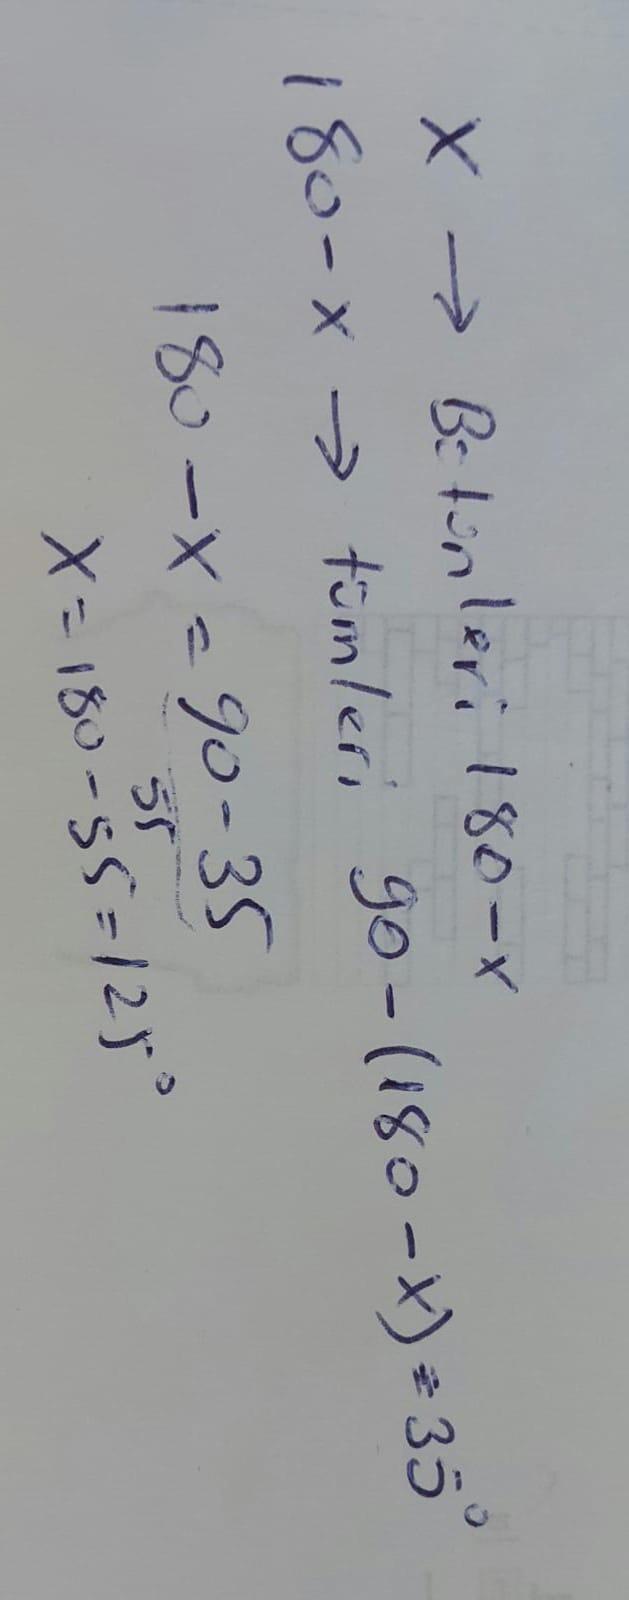 x → Bütünleri 180-x
180-x → tümleri 90-(180-x)=35°
180-x = 90-35
55
x=180-55=125°